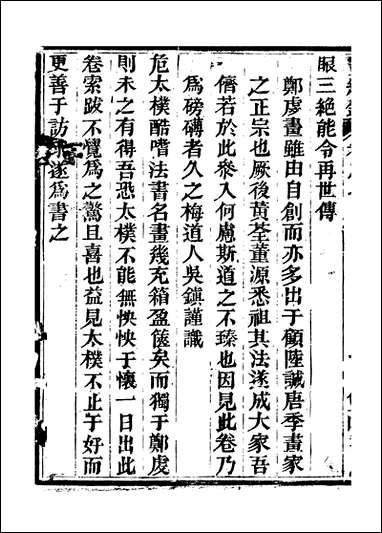 眼三絶能令再世傳
鄭虔畫雖由自創而亦多出于顧陸誠唐季畫家
之正宗也厥後黃荃董源悉祖其法遂成大家吾
儕若於此叅入何慮斯道之不臻也因見此卷乃
爲磅礴者久之梅道人吳鎮謹識
危太樸酷嗜法書名畫幾充箱盈篋矣而獨于鄭虔
則未之有得吾恐太樸不能無怏怏于懷一日出此
卷索跋不覺爲之驚且喜也益見太樸不止于好而
更善于訪遂爲書之